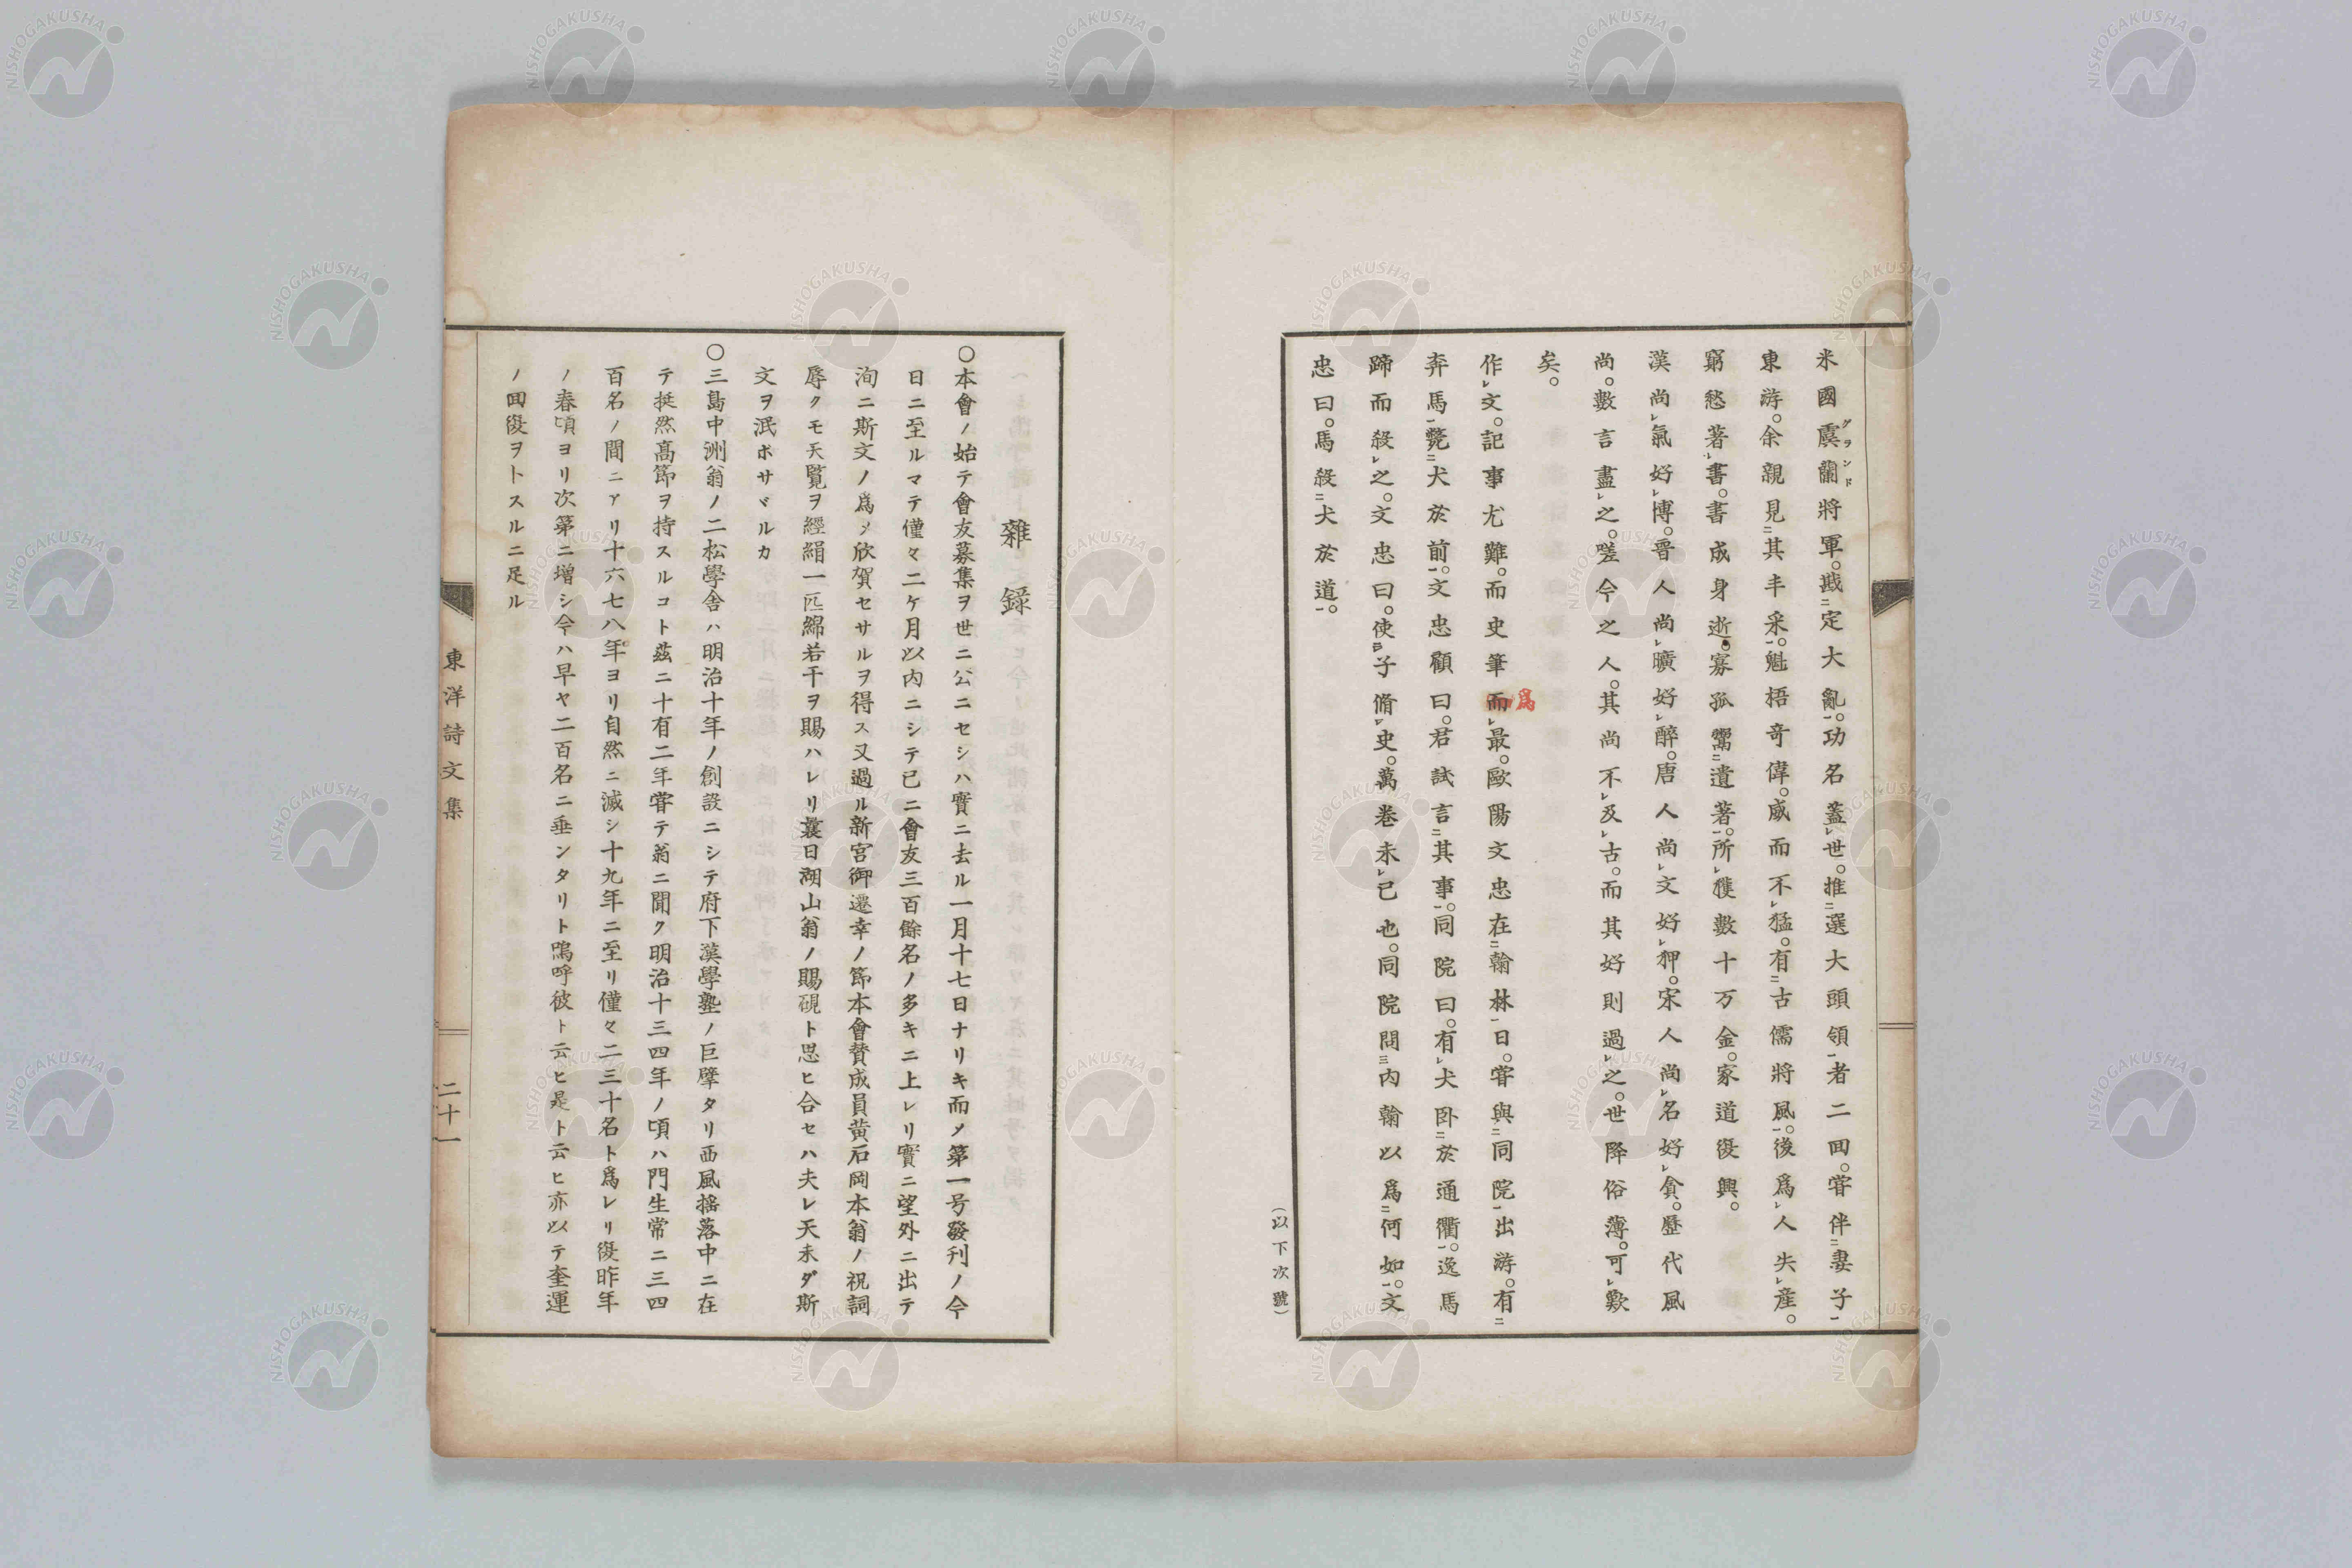 米國虞蘭將軍。戡㆓定大亂㆒。功名蓋㆑世。推㆓選大頭領㆒者二回。嘗伴㆓妻子㆒
グランド
東游。余親見㆓其丰采㆒。魁梧奇偉。威而不㆑猛。有㆓古儒將風㆒。後爲㆑人失㆑産。
窮愁著㆑書。書成身逝。寡孤鬻㆓遺著㆒。所㆑獲數十万金。家道復興。
漢尚㆑氣好㆑博。晋人尚㆑曠好㆑醉。唐人尚㆑文好㆑狎。宋人尚㆑名好㆑貪。歷代風
尚。數言盡㆑之。嗟今之人。其尚不㆑及㆑古。而其好則過㆑之。世降俗薄。可㆑歎
矣。
作㆑文。記事尤難。而史筆而㆑最。歐陽文忠在㆓翰林㆒日。嘗與㆓同院㆒出游。有㆓
爲
奔馬㆒斃㆓犬於前㆒。文忠顧曰。君試言㆓其事㆒。同院曰。有㆑犬卧㆓於通衢㆒。逸馬
蹄而殺㆑之。文忠曰。使㆔子脩㆑史。萬卷未㆑已也。同院問㆔內翰以爲㆓何如㆒。文
忠曰。馬殺㆓犬於道㆒。
(以下次號)
雜錄
○本會ノ始テ會友募集ヲ世ニ公ニセシハ實ニ去ル一月十七日ナリキ而メ第一号發刊ノ今
日ニ至ルマテ僅々二ケ月以內ニシテ已ニ會友三百餘名ノ多キニ上レリ實ニ望外ニ出テ
洵ニ斯文ノ爲メ欣賀セサルヲ得ス又過ル新宮御遷幸ノ節本會賛成員黄石岡本翁ノ祝詞
辱クモ天覧ヲ經絹一匹綿若干ヲ賜ハレリ曩日湖山翁ノ賜硯ト思ヒ合セハ夫レ天未ダ斯
文ヲ泯ホサヾルカ
○三島中洲翁ノ二松學舎ハ明治十年ノ創設ニシテ府下漢學塾ノ巨擘タリ西風搖落中ニ在
テ挺然髙節ヲ持スルコト茲ニ十有二年嘗テ翁ニ聞ク明治十三四年ノ頃ハ門生常ニ三四
百名ノ間ニアリ十六七八年ヨリ自然ニ减シ十九年ニ至リ僅々二三十名ト爲レリ復昨年
ノ春頃ヨリ次第ニ增シ今ハ早ヤ二百名ニ垂ンタリト嗚呼彼ト云ヒ是ト云ヒ亦以テ奎運
ノ回復ヲトスルニ足ル
東洋詩文集
二十一
NISHOGAKUSHA